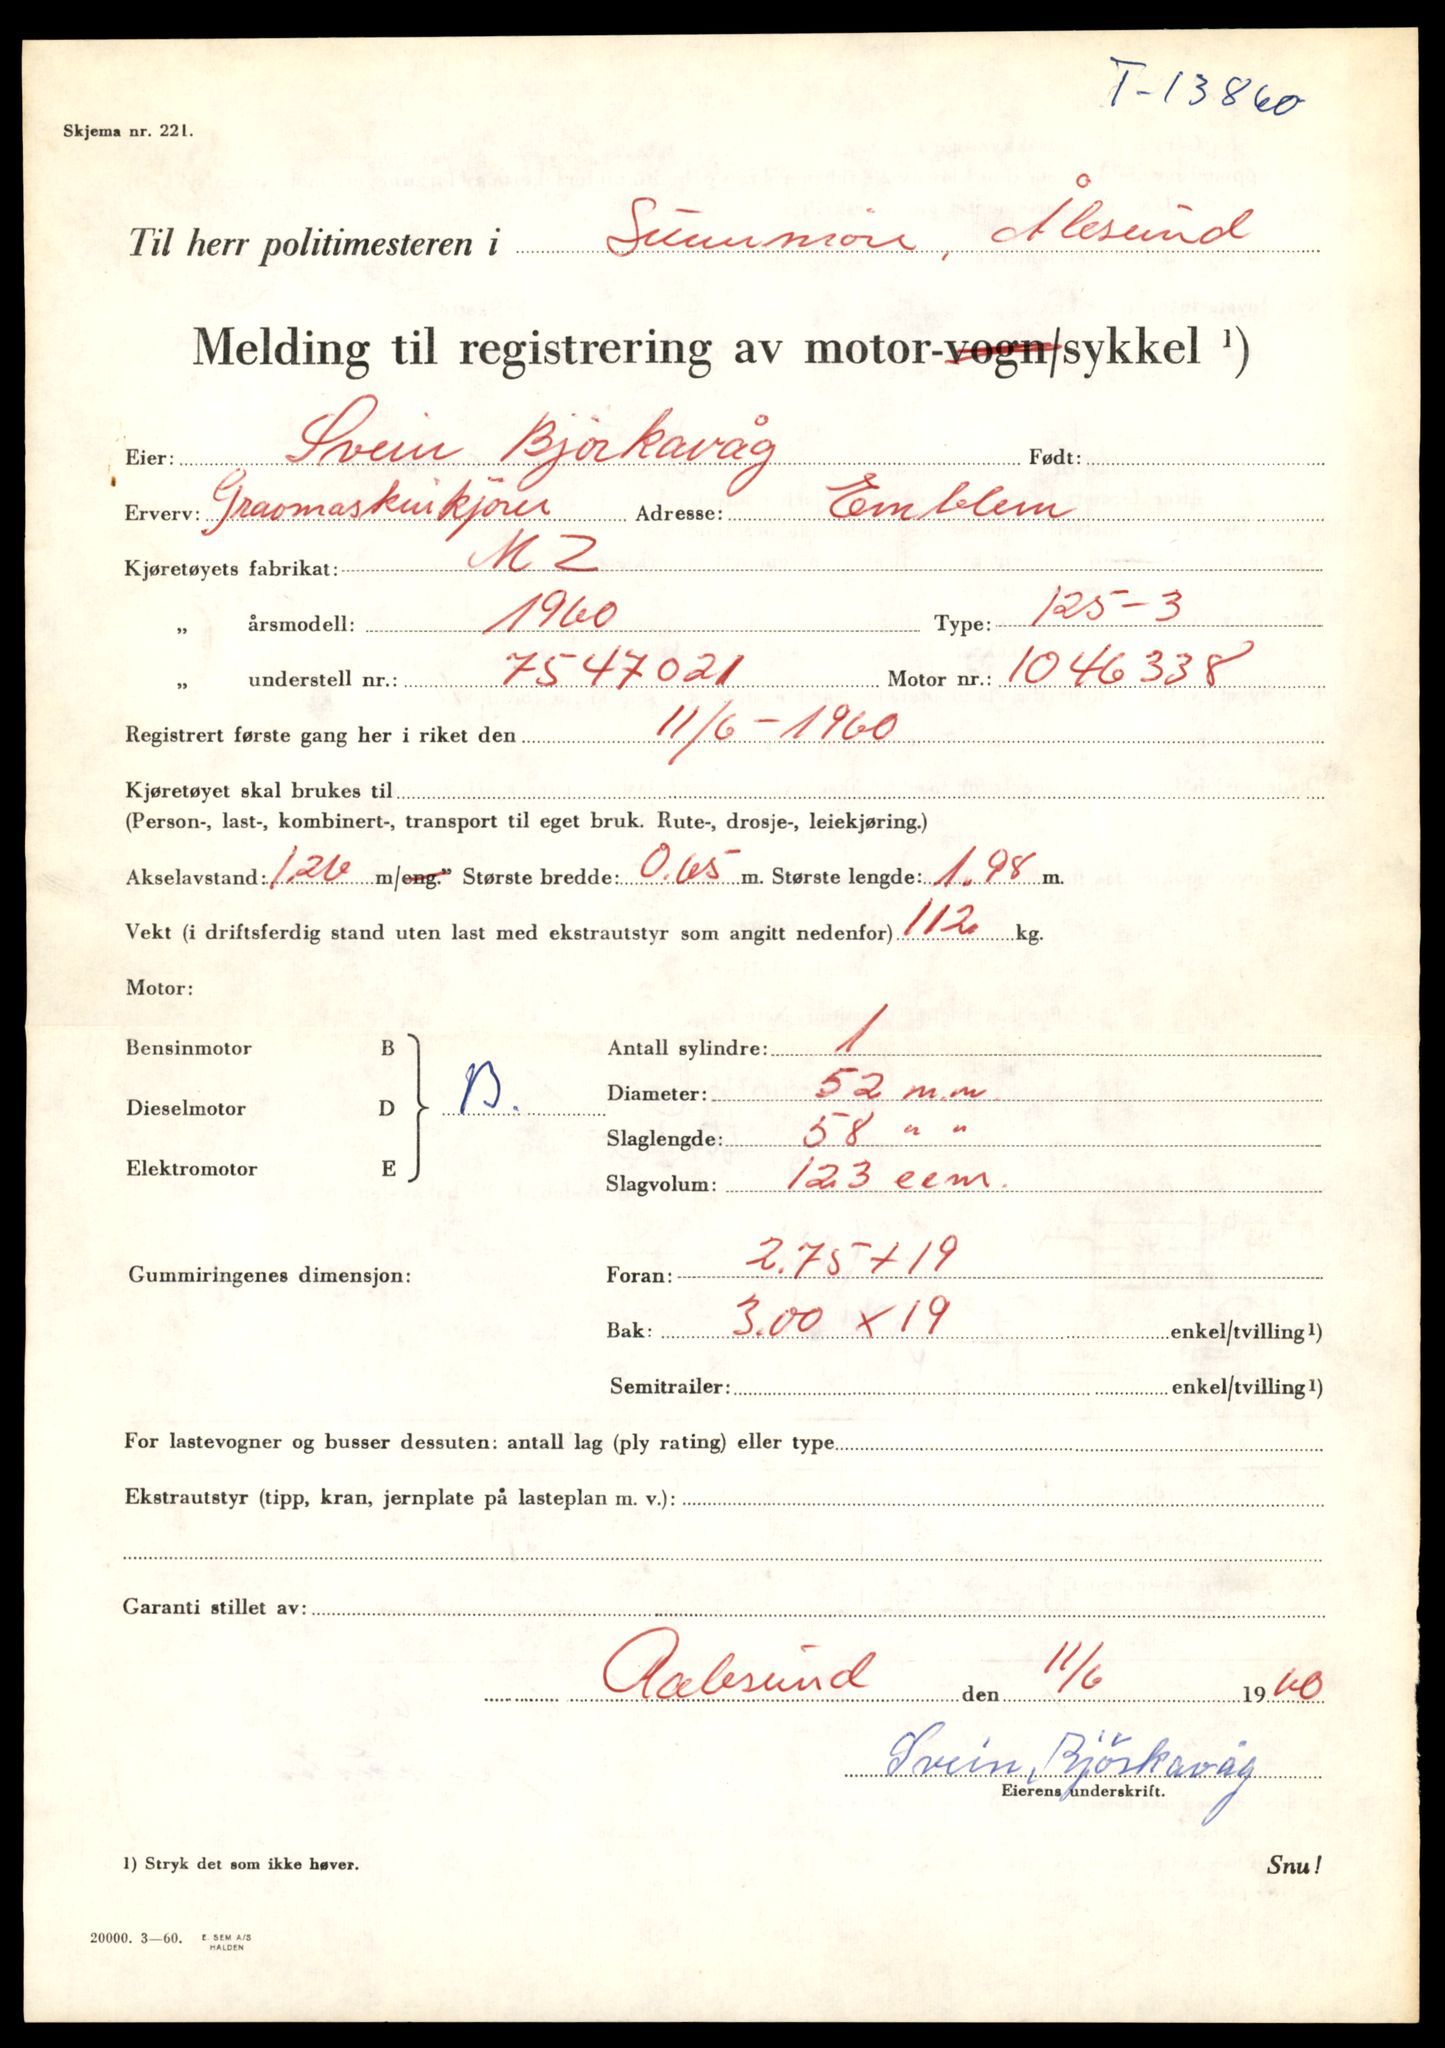 T-13860
Skjema nr. 221.
Til herr politimesteren i Sunnmöre, Ålesund
Melding til registrering av motor-vogn/sykkel ¹)
Eier: Svein Björkavåg Født:
Erverv: Gravmaskinkjörer Adresse: Emblem
Kjøretøyets fabrikat: MZ
„ årsmodell: 1960 Type: 125-3
„ understell nr.: 7547021 Motor nr.: 1046338
Registrert første gang her i riket den 11/6-1960
Kjøretøyet skal brukes til
(Person-, last-, kombinert-, transport til eget bruk. Rute-, drosje-, leiekjøring.)
Akselavstand: 1.26 m/eng.” Største bredde: 0.65 m. Største lengde: 1.98 m.
Vekt (i driftsferdig stand uten last med ekstrautstyr som angitt nedenfor) 112 kg.
Motor:
Bensinmotor B
Dieselmotor D B.
Elektromotor E
Antall sylindre: 1
Diameter: 52 m.m.
Slaglengde: 58 " "
Slagvolum: 123 ccm.
Gummiringenes dimensjon: Foran: 2.75 + 19
Bak: 3.00 x 19 enkel/tvilling¹)
Semitrailer: enkel/tvilling¹)
For lastevogner og busser dessuten: antall lag (ply rating) eller type
Ekstrautstyr (tipp, kran, jernplate på lasteplan m. v.):
Garanti stillet av:
Aalesund den 11/6 1960
Svein Björkavåg
Eierens underskrift.
1) Stryk det som ikke høver.
Snu!
20000. 3—60. E. SEM A/S
HALDEN